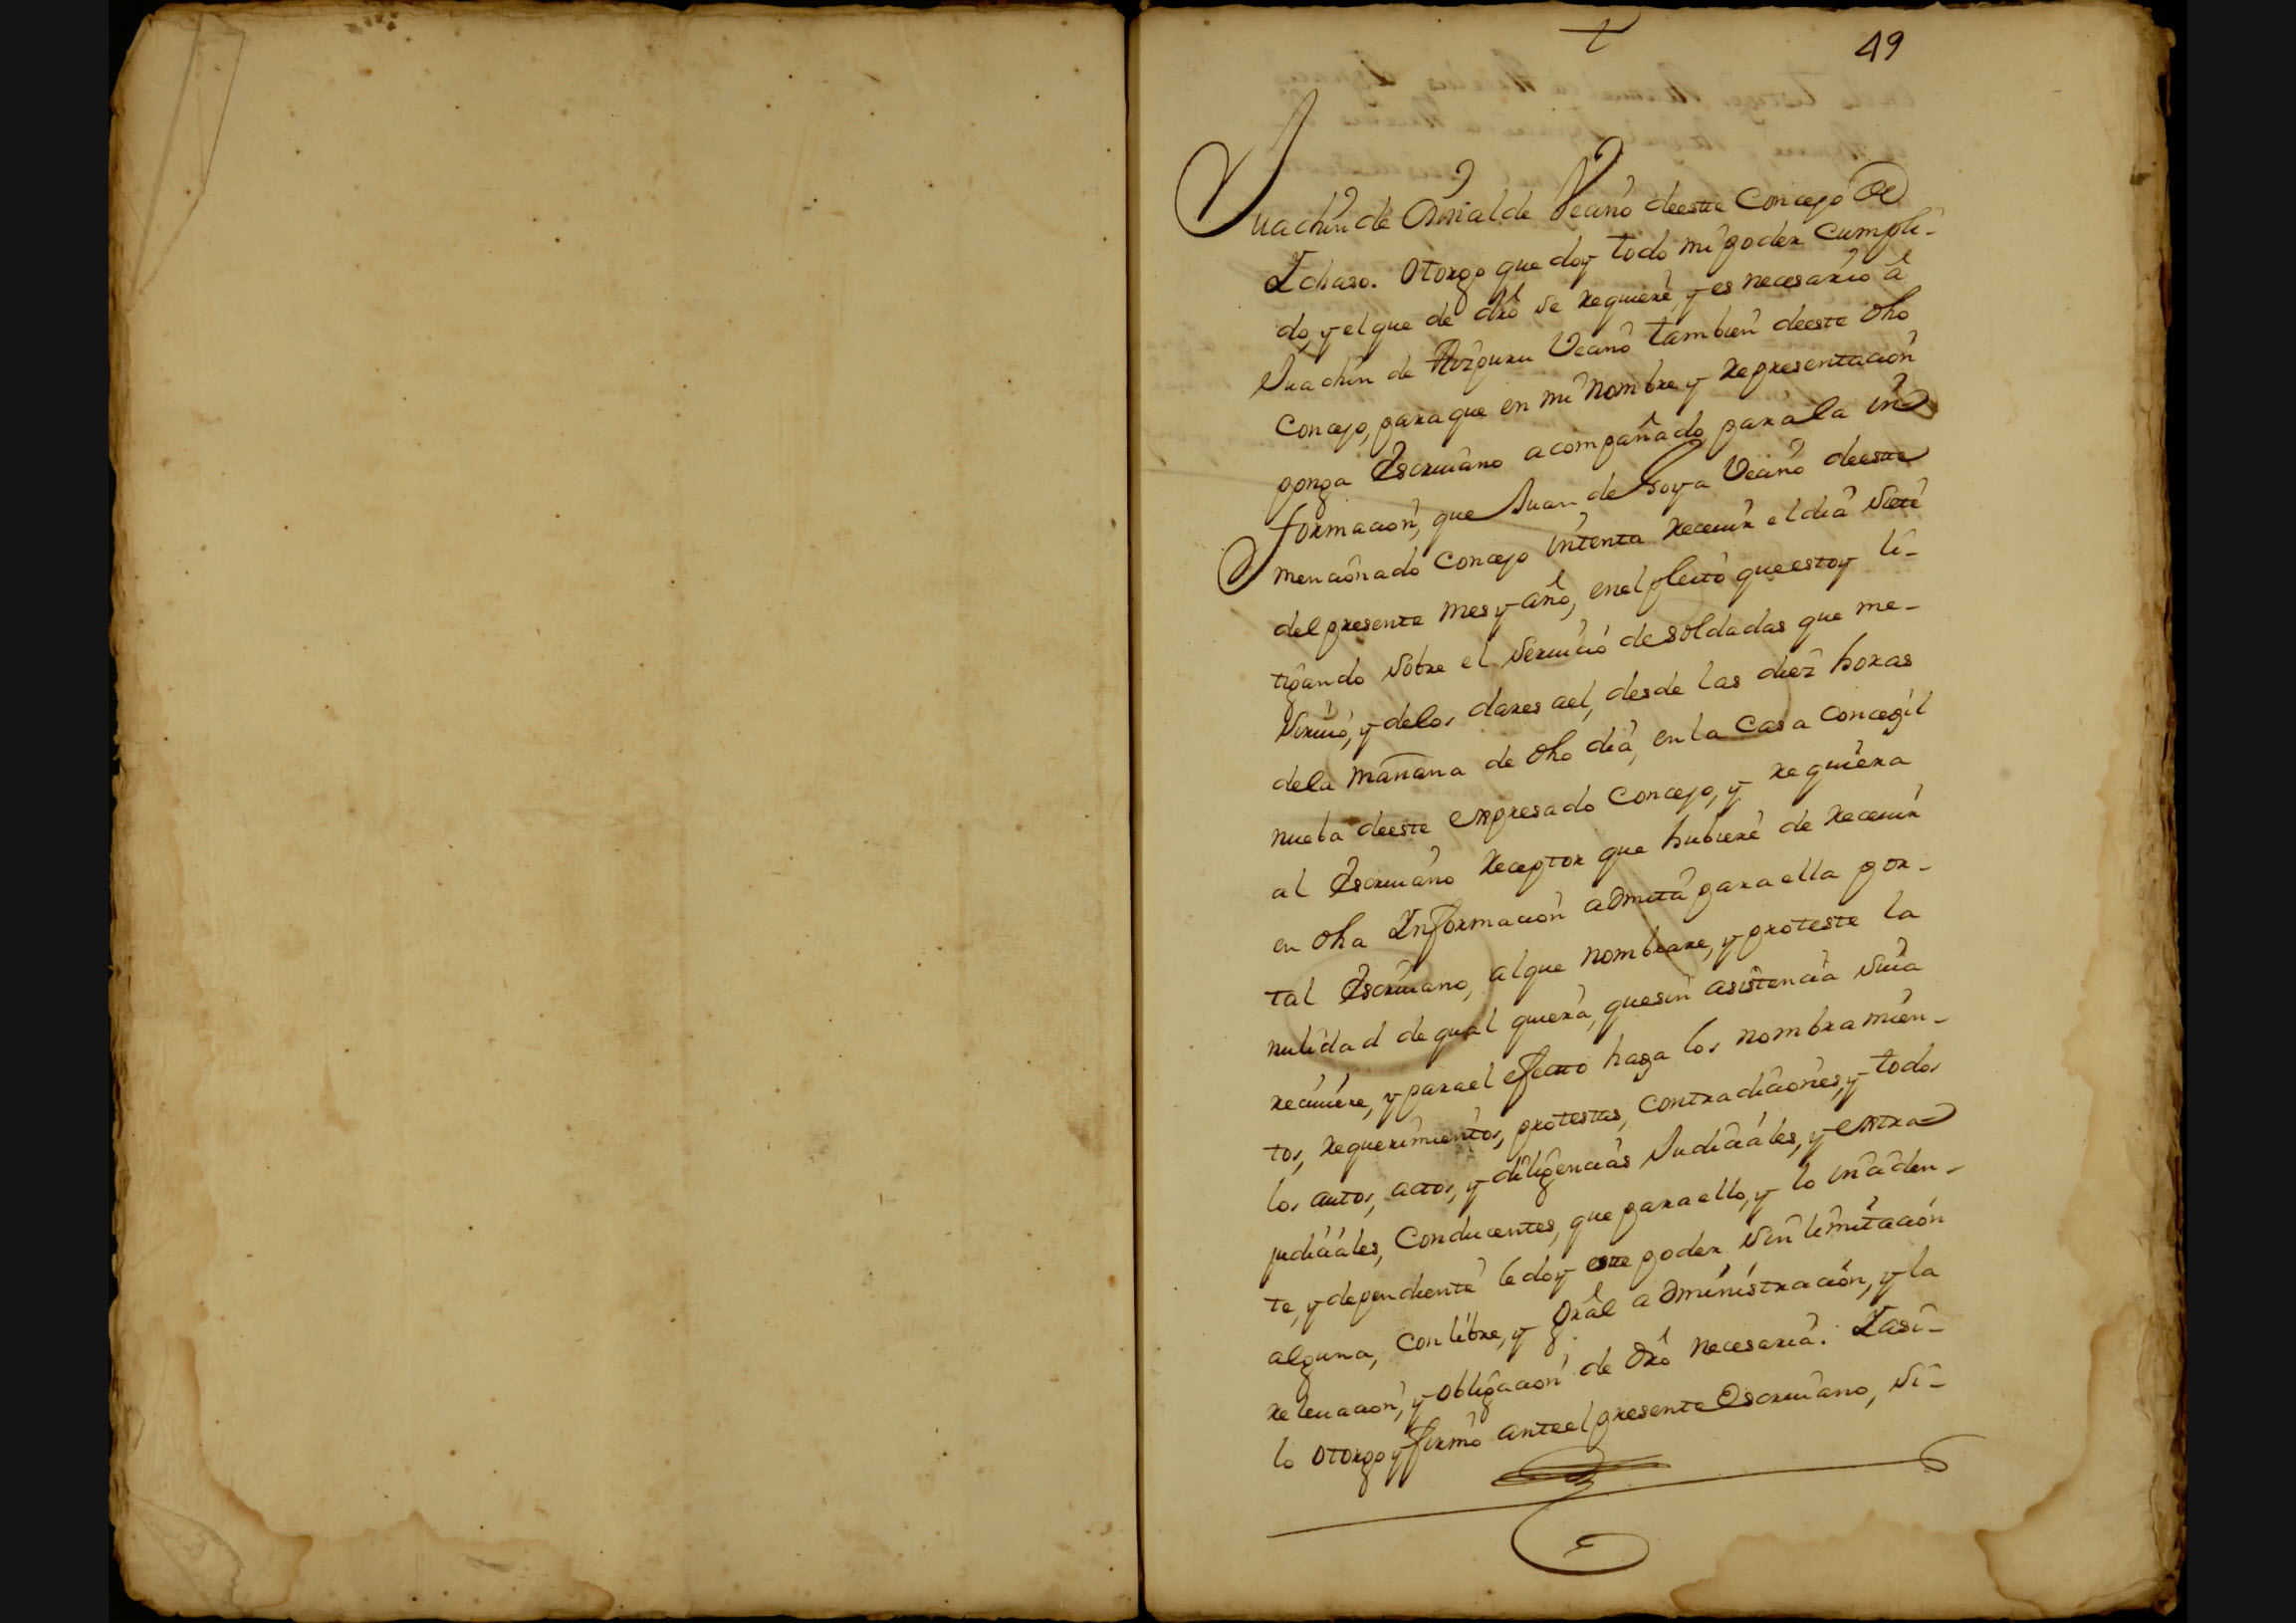 49
Juachin de Oxirialde Vecino deeste Concejo de
Ichaso. Otorgo que doy todo mi poder Cumpli-
do, y el que de dro se requiere, y es necesario á
Juachin de Aizpuru Vecino tambien deeste dho
Concejo, para que en mi Nombre y representacion
ponga Escriuano acompañado para la in
formacion, que Juan de Goya Vecino deeste
mencionado Concejo intenta receuir el dia siete
del presente mes y año, en el pleito que estoy li-
tigando sobre el seruicio de soldadas que me
siruio, y de los dares ael, desde las diez horas
dela mañana de dho dia, en la Casa Concegil
nueba deeste expresado Concejo, y requiera
al Escriuano Receptor que hubiere de receuir
en dha Informacion admita para ella por
tal Escriuano, al que nombrare, y proteste la
nulidad de qual quiera, que sin asistencia suia
reciuiere, y para el efecto haga los nombramien-
tos, requerimientos, protestas, contradiciones, y todos
los autos, actos, y diligencias Judiciales, y extra
judiciales, Conducentes, que para ello, y lo inciden-
te, y dependiente le doy este poder sin limitacion
alguna, con libre, y gral administracion, y la
releuacion, y obligacion de dro necesaria. Iasi-
lo otorgo y firmo ante el presente Escriuano, si-